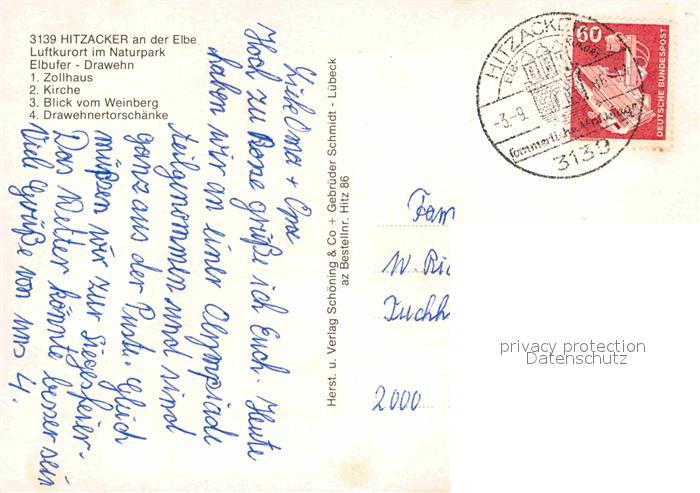 3139 HITZACKER an der Elbe
Luftkurort im Naturpark
Elbufer - Drawehn
1. Zollhaus
2. Kirche
3. Blick vom Weinberg
4. Drawehnertorschänke
Liebe Oma + Opa
Hoch zu Rosse grüße ich Euch. Heute
haben wir an einer Olympiade
teilgenommen und sind
ganz aus der Puste. Gleich
müßen wir zur Siegesfeier.
Das Wetter könnte besser sein
Viele Grüße von uns 4.
Herst. u. Verlag Schöning & Co + Gebrüder Schmidt - Lübeck
az Bestellnr. Hitz 86
HITZACKER
-3.-9.
3139
60
DEUTSCHE BUNDESPOST
Fam
W. Ric
Tuchh
2000
privacy protection
Datenschutz